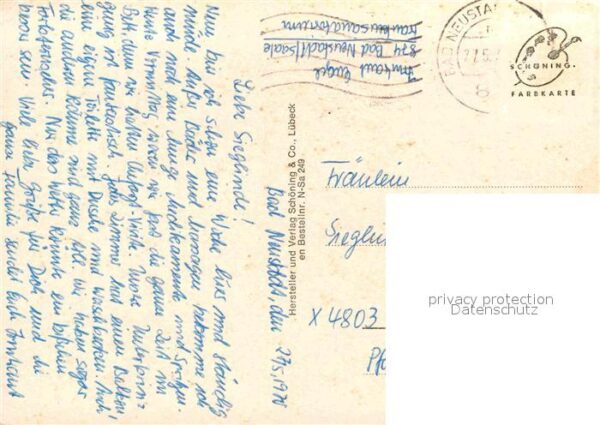 Bad Neustadt, den 27.5.1978
Liebe Sieglinde!
Nun bin ich schon eine Woche hier und ständig
müde. Außer Bäder und Massagen bekomme ich
auch noch eine Menge Medikamente und Spritzen.
Heute Vormittag waren wir fast die ganze Zeit im
Bett, denn wir hatten Unterbringung
ist phantastisch. Jedes Zimmer hat einen Balkon,
eine eigene Toilette mit Dusche und Waschbecken. Auch
die anderen Räume sind ganz toll, wir haben sogar
Farbfernseher. Nur das Wetter könnte ein bißchen
besser sein. Viele liebe Grüße für Dich und die
ganze Familie sendet Euch Irmtraut
Hersteller und Verlag Schöning & Co., Lübeck
en Bestellnr. N-Sa 249
Irmtraut Engel
874 Bad Neustadt/Saale
Frankensanatorium
BAD NEUSTA
8
SCHÖNING
FARBKARTE
Fräulein
Sieglin
X 4803
privacy protection
Datenschutz